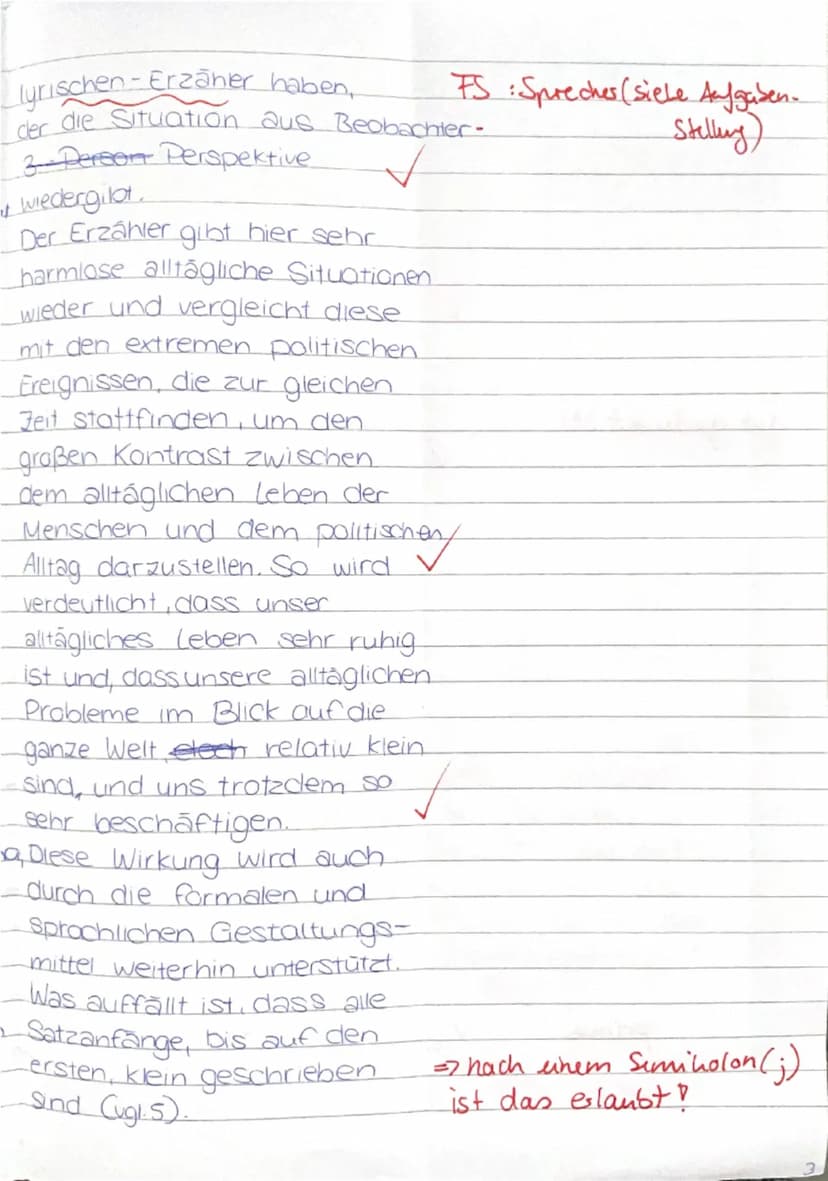 lyrischen-Erzähler haben,
FS : Sprecher (siehe Aufgaben-
stellung)
der die Situation aus Beobachter-
3. Person Perspektive
wiedergibt.
Der Erzähler gibt hier sehr
harmlose alltägliche Situationen
wieder und vergleicht diese
mit den extremen politischen
Ereignissen, die zur gleichen
Zeit stattfinden, um den
großen Kontrast zwischen
dem alltäglichen Leben der
Menschen und dem politischen
Alltag darzustellen. So wird
verdeutlicht, dass unser
alltägliches Leben sehr ruhig
ist und, dass unsere alltäglichen
Probleme im Blick auf die
ganze Welt, doch relativ klein
sind, und uns trotzdem so
sehr beschäftigen.
Diese Wirkung wird auch
durch die formalen und
sprachlichen Gestaltungs-
mittel weiterhin unterstützt.
Was auffällt ist, dass alle
Satzanfänge, bis auf den
ersten, klein geschrieben
sind (vgl. S).
=> nach einem Semikolon (;)
ist das erlaubt!
3